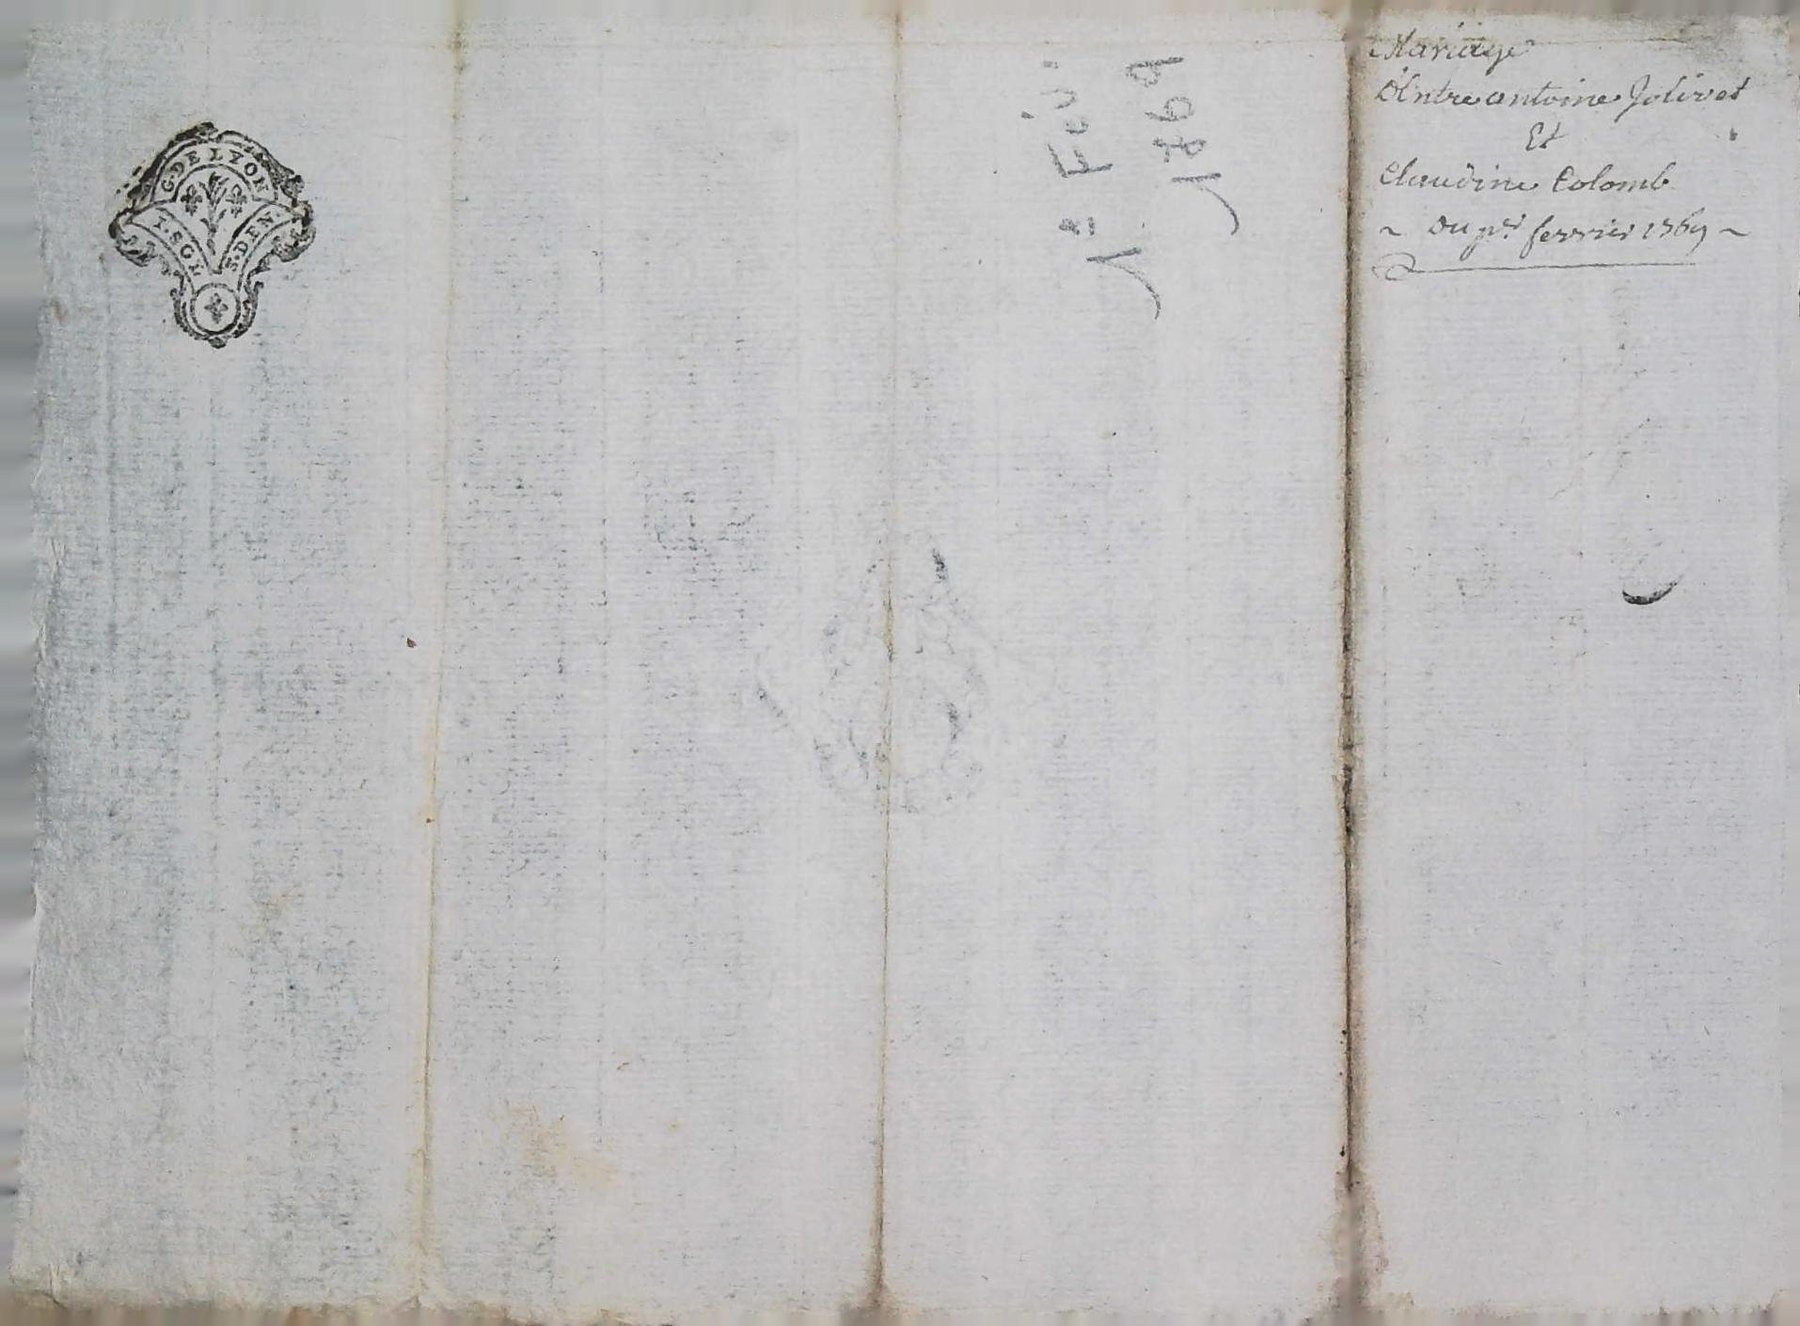 G. DE LYON
1. SOL
8. DEN.
1er Fév.
1769
Mariage
D'Entre antoine Jolivet
Et
Claudine Colomb
~ Du pr. fevrier 1769 ~